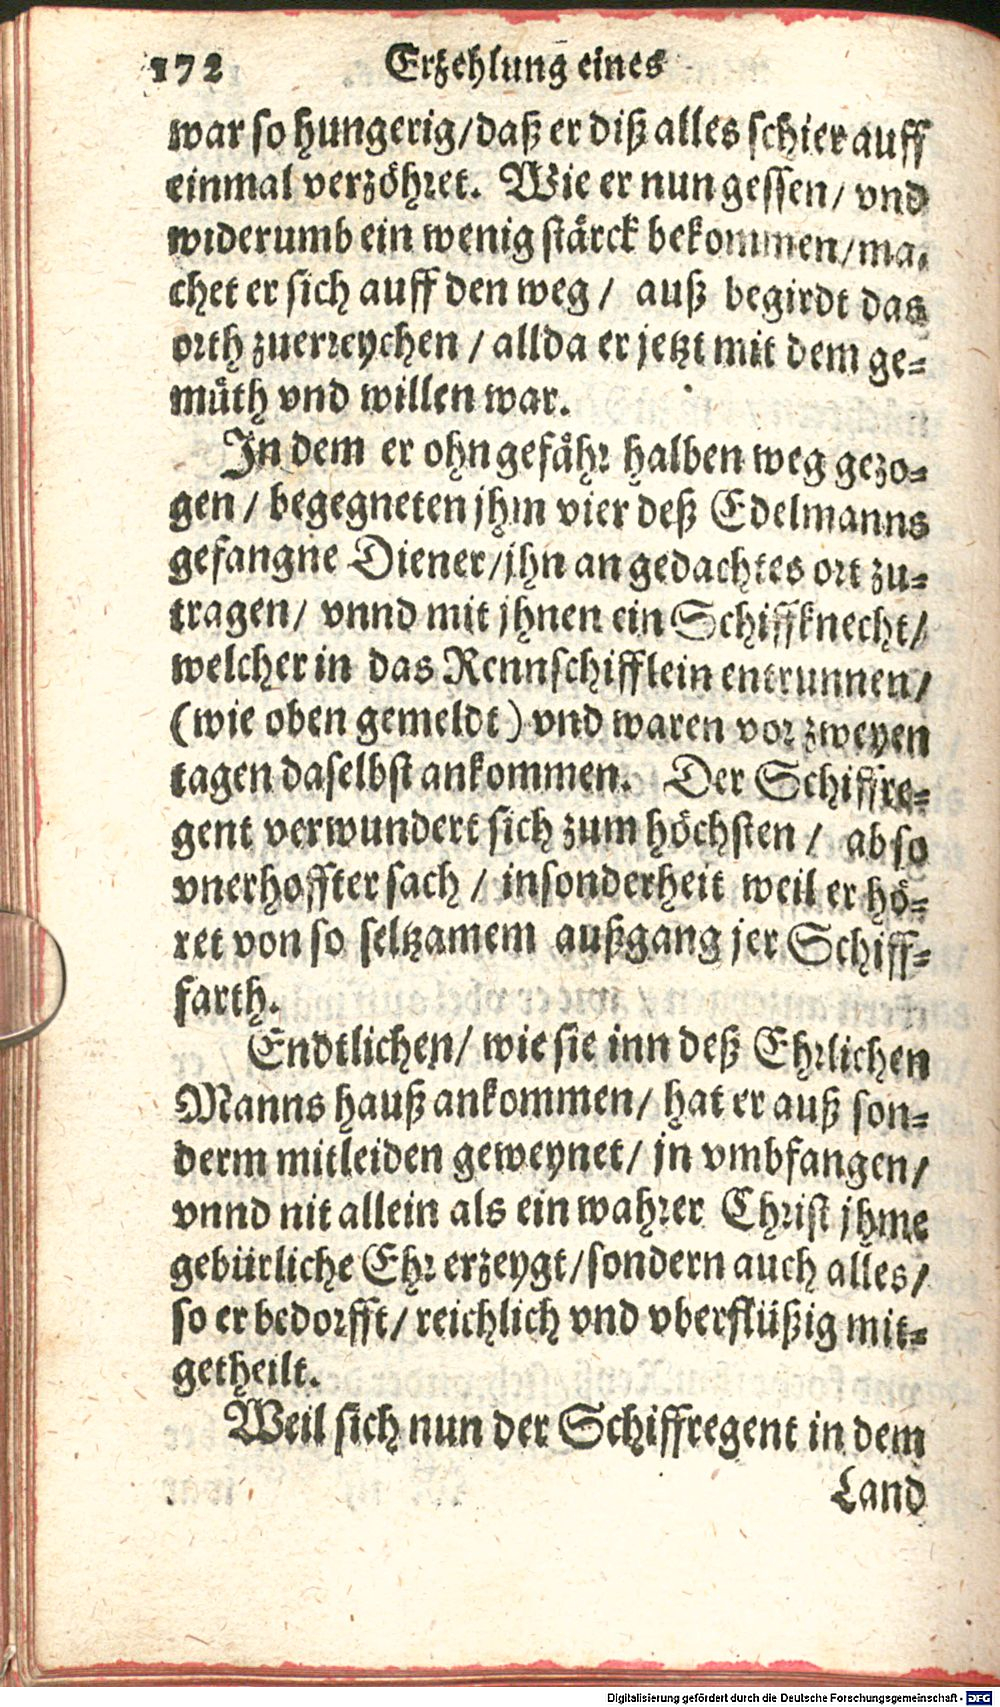 172 Erzehlung eines
war so hungerig/daß er diß alles schier auff
einmal verzöhret. Wie er nun gessen/ vnd
widerumb ein wenig stärck bekommen/ma-
chet er sich auff den weg/ auß begirdt das
orth zuerreychen/ allda er jetzt mit dem ge-
müth vnd willen war.
In dem er ohngefåhr halben weg gezo-
gen/ begegneten jhm vier deß Edelmanns
gefangne Diener/jhn an gedachtes ort zu-
tragen/ vnnd mit jhnen ein Schiffknecht/
welcher in das Rennschifflein entrunnen/
(wie oben gemeldt) vnd waren vor zweyen
tagen daselbst ankommen. Der Schiffre-
gent verwundert sich zum höchsten/ ab so
vnerhoffter sach/ insonderheit weil er hö-
ret von so seltzamem außgang jer Schiff-
farth.
Endtlichen/ wie sie inn deß Ehrlichen
Manns hauß ankommen/ hat er auß son-
derm mitleiden geweynet/ jn vmbfangen/
vnnd nit allein als ein wahrer Christ jhme
gebürliche Ehr erzeygt/sondern auch alles/
so er bedorfft/ reichlich vnd vberflüßig mit-
getheilt.
Weil sich nun der Schiffregent in dem
Land
Digitalisierung gefördert durch die Deutsche Forschungsgemeinschaft - DFG